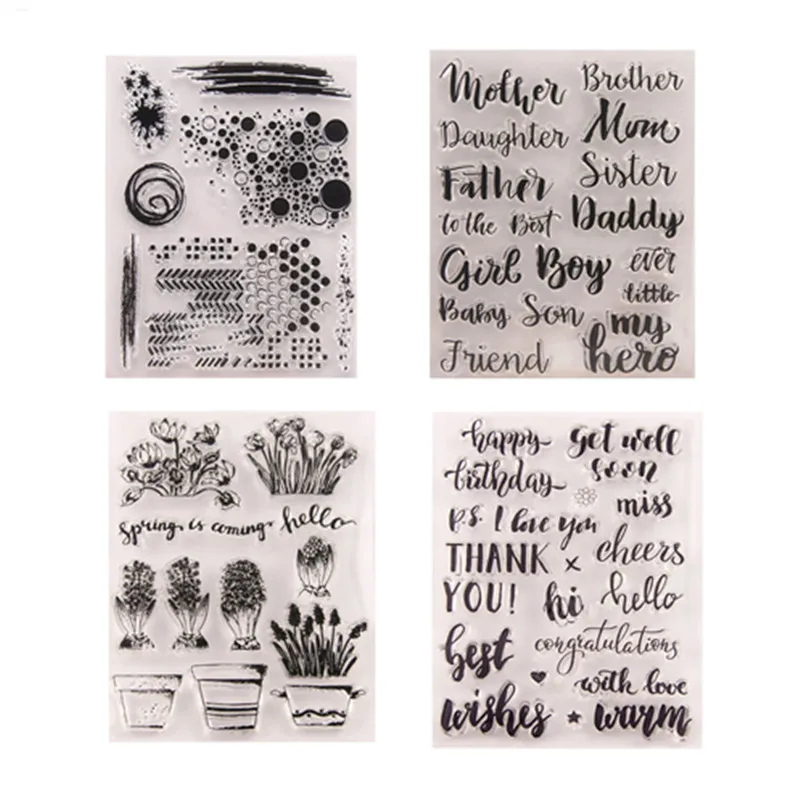 Mother
Brother
Daughter
Mom
Father
Sister
to the Best
Daddy
Girl Boy
ever
little
Baby Son
my
Friend
hero
Spring is coming
hello
happy
birthday
get well
soon
P.S. I love you
miss
THANK x
YOU!
cheers
hi
hello
best
wishes
congratulations
with love
warm